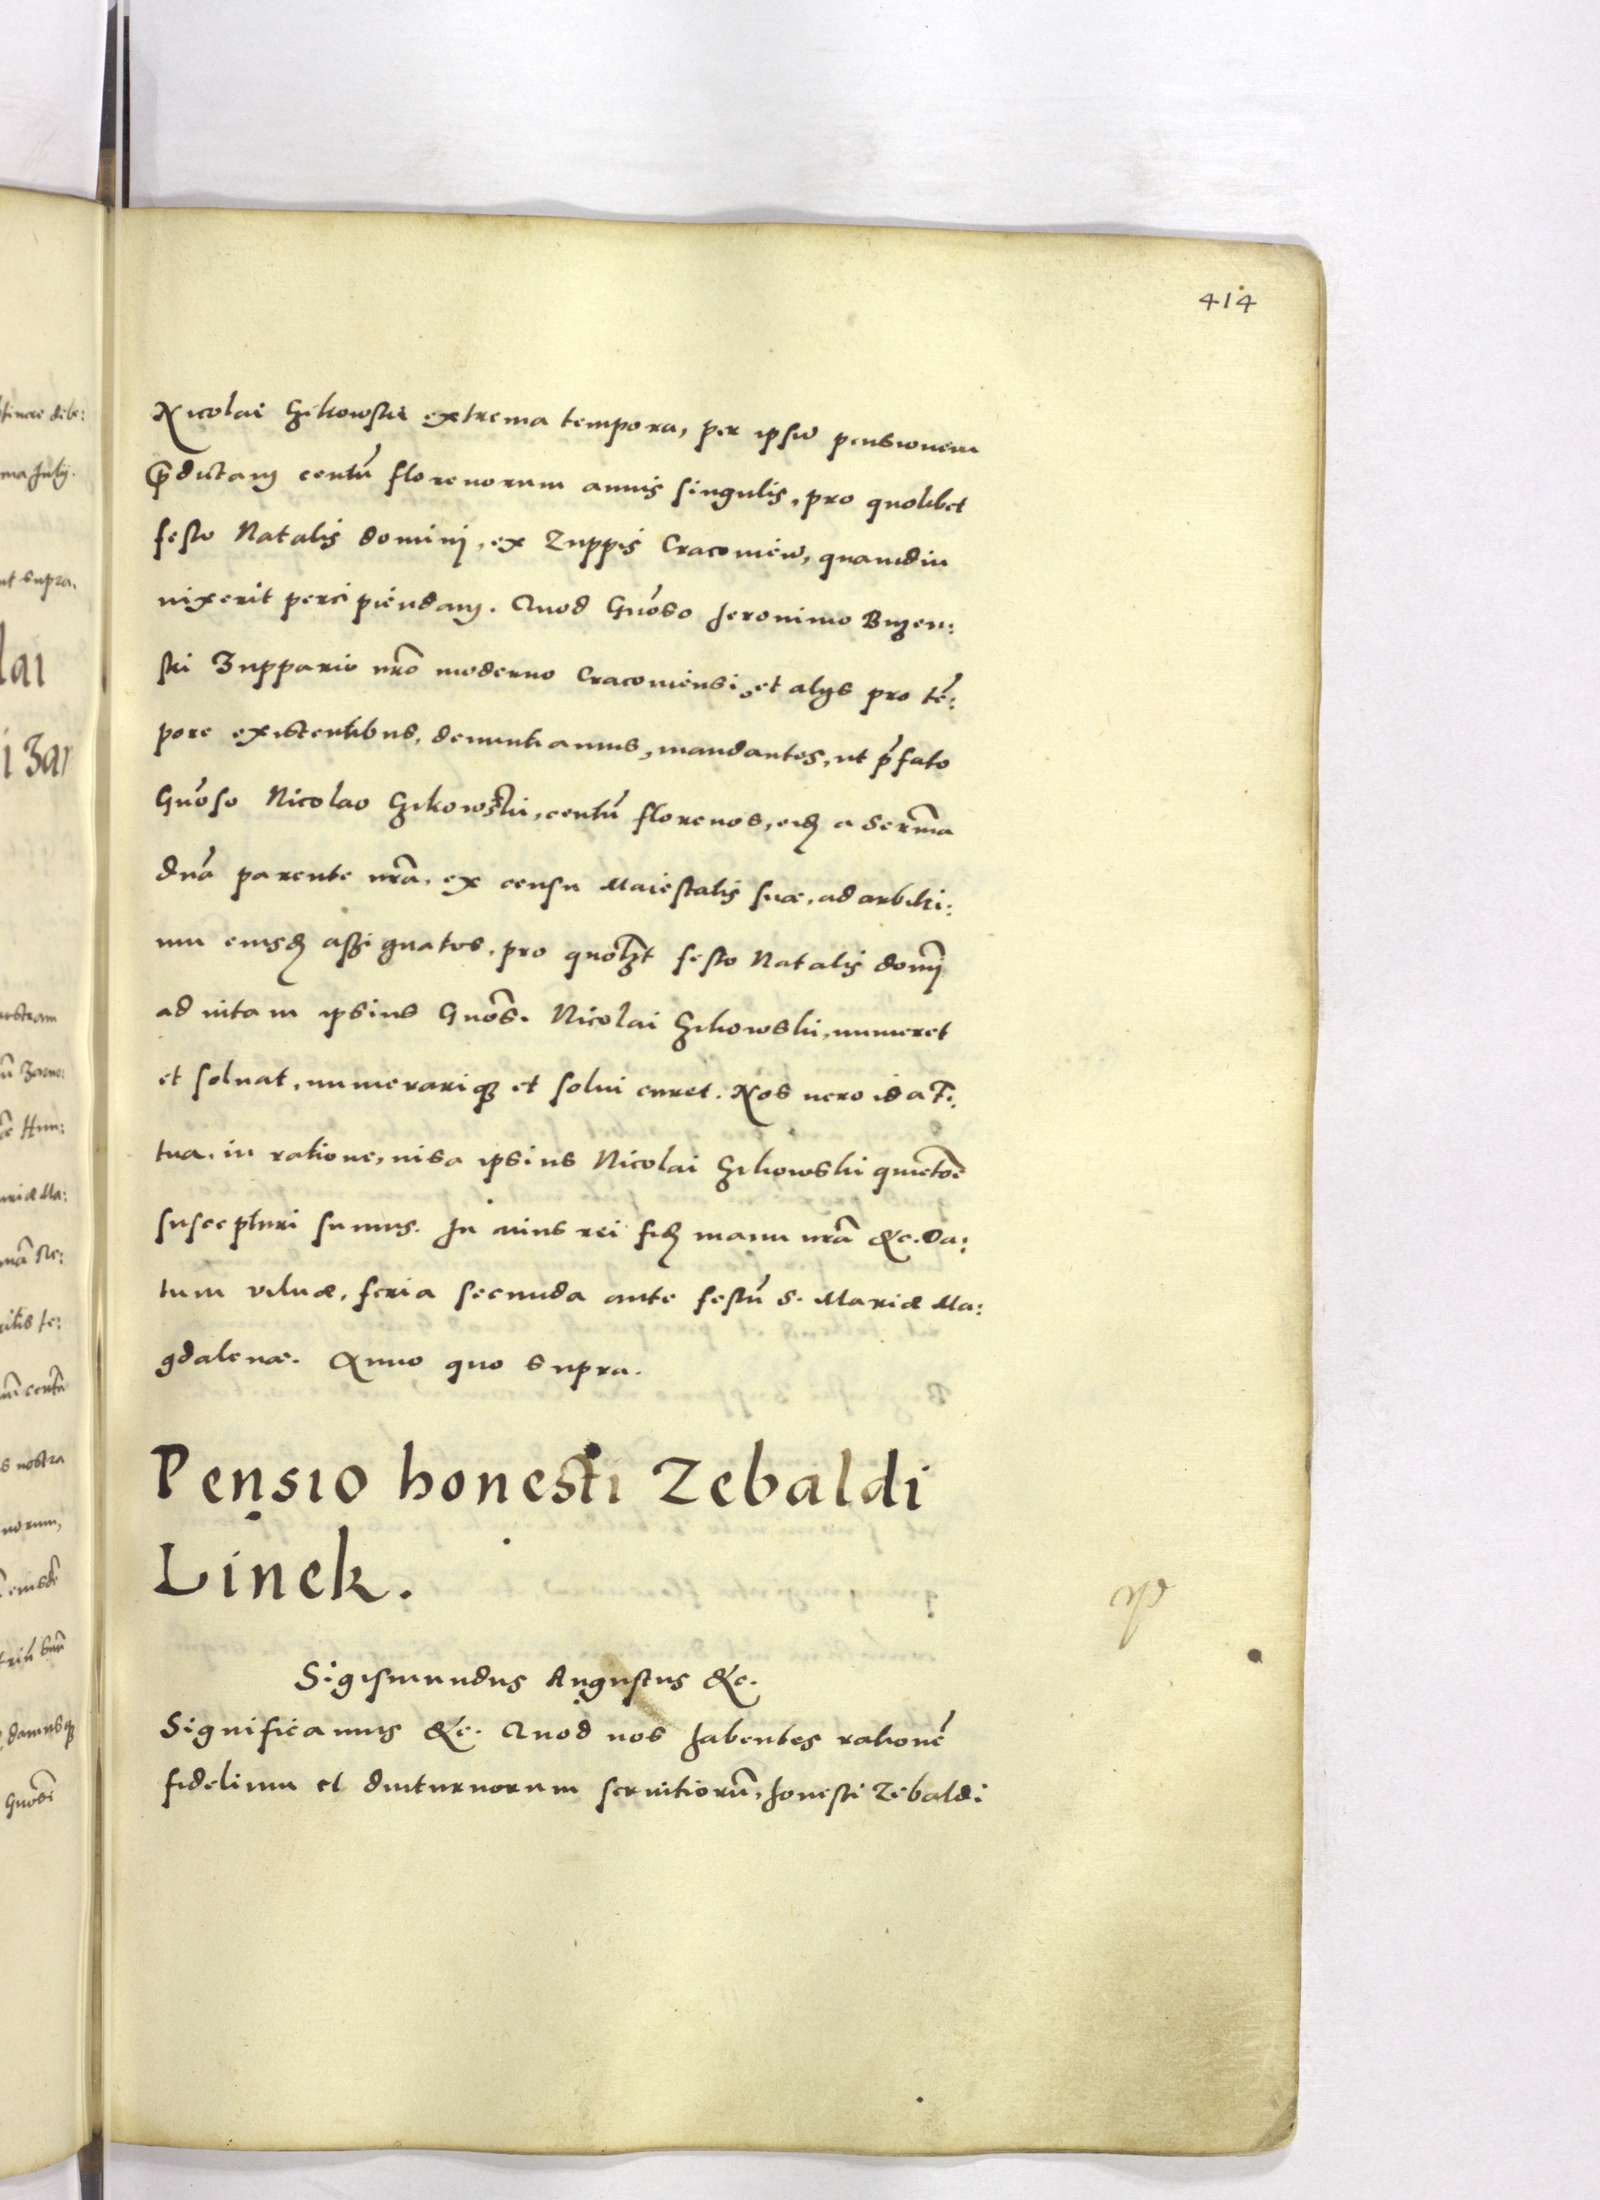 414
Nicolai Gikowski extrema tempora, per ipsū pensionem
p̄dictam centū florenorum annis singulis, pro quolibet
festo Natalis domini, ex Zuppis Cracovień, quamdiu
vixerit percipiendam. Quod Gnoso Jeronimo Buzen:
ski Zuppario nrō moderno Cracoviensi, et alijs pro tē:
pore existentibus, denuntiamus, mandantes, ut p̄fato
Gnoso Nicolao Gikowski, centū florenos, eidē a Serma
dnā parente nrā, ex censu Maiestatis suæ, ad arbitri:
um eiusdē assignatos, pro quolbt festo Natalis domī
ad vitam ipsius Gnōs. Nicolai Gikowski, numeret
et solvat, numerariq et solvi curet. Nos vero id a F.
tua, in ratione, visa ipsius Nicolai Gikowski quietōe
suscepturi sumus. In cuius rei fidē manu nrā &c. Da:
tum Vilnæ, feria secunda ante festū S. Mariæ Ma:
gdalenæ. Anno quo supra.
Pensio honesti Zebaldi
Linek.
Sigismundus Augustus &c.
Significamus &c. Quod nos habentes rationē
fidelium et diuturnorum servitiorū, honesti Zebaldi
tinere debe:
ma July.
ut supra.
lai
i Zar
nostram
ū Zarno:
æ Hun:
mariæ Ma:
s nostra
norum,
eiusdē
damusq
Gnosi